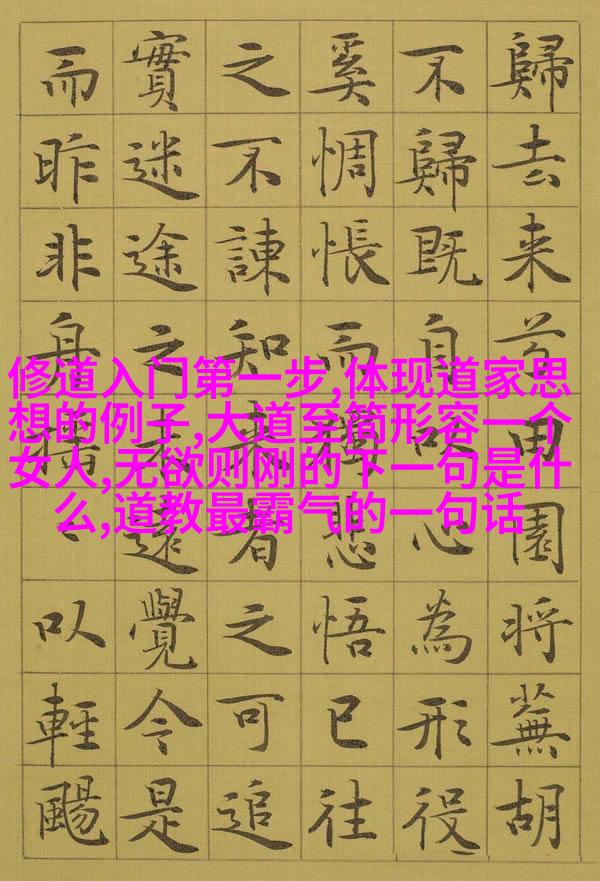 歸去来兮田園将蕪胡
不歸既自以心為形役
奚惆悵而獨悲悟已往
之不諫知来者之可追
實迷途之未遠覺今是
而昨非舟以輕颺
修道入门第一步,体现道家思
想的例子,大道至简形容一个
女人,无欲则刚的下一句是什
么,道教最霸气的一句话